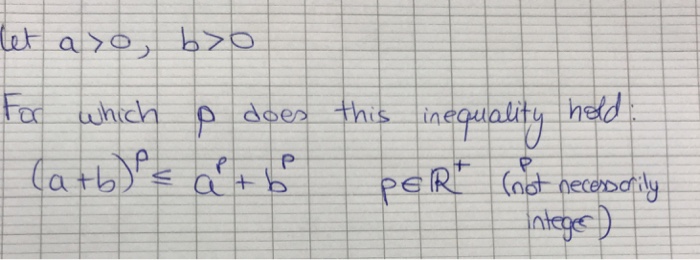 let a>0, b>0
For which p does this inequality hold:
(a+b)^p ≤ a^p + b^p p∈ℝ^+ (p not necessarily
integer)